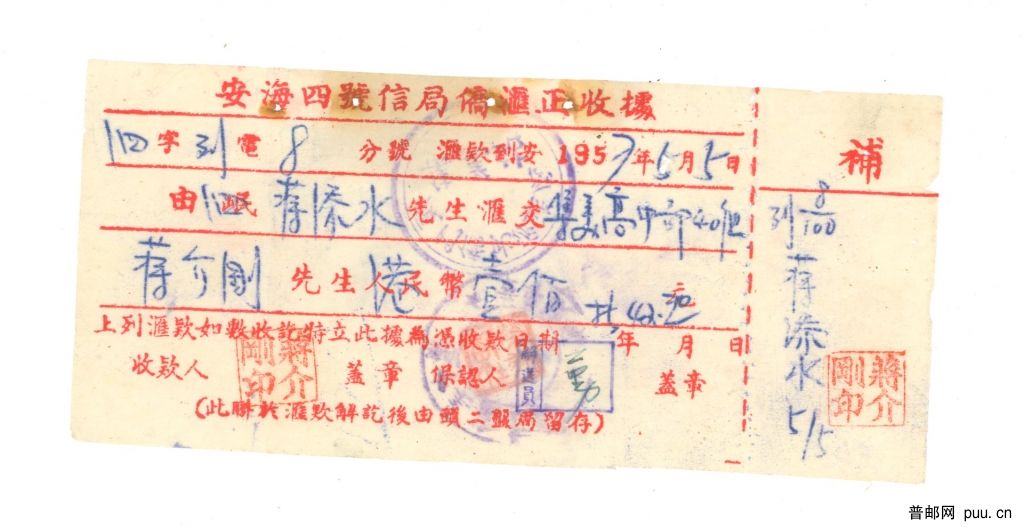 安海四號信局僑滙正收據
字列電8分號 滙欵到安1957年5月5日
由 岷 蒋添水先生滙交集美高中部40組
蒋介剛先生人民幣港壹佰
上列滙欵如數收訖特立此據為憑收欵日期 年 月 日
收欵人 蓋章 保認人 蓋章
蔣介剛印
(此聯於滙欵解訖後由頭二盤局留存)
補
列8/100
蒋添水
5/5
蔣介剛印
普邮网 puu.cn